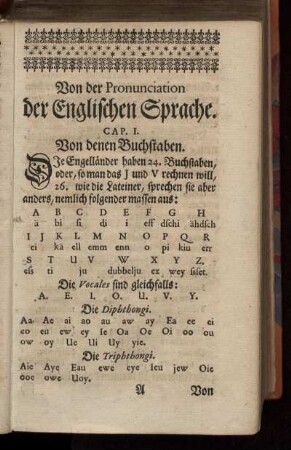 Von der Pronunciation
der Englischen Sprache.
CAP. I.
Von denen Buchstaben.
DIe Engelländer haben 24. Buchstaben,
oder, so man das J und V rechnen will,
26. wie die Lateiner, sprechen sie aber
anders, nemlich folgender massen aus:
A B C D E F G H
ä bi si di i eff dschi ähdsch
I J K L M N O P Q R
ei kä ell emm enn o pi kiu err
S T U V W X Y Z.
eß ti ju dubbelju ex wey
Die Vocales sind gleichfalls:
A. E. I. O. U. V. Y.
Die Diphthongi.
Aa Ae ai ao au aw ay Ea ee ei
eo eu ew ey Ie Oa Oe Oi oo ou
ow oy Ue Ui Uy yie.
Die Triphthongi.
Aie Aye Eau ewe eye Ieu jew Oie
ooe owe Uoy.
A Von